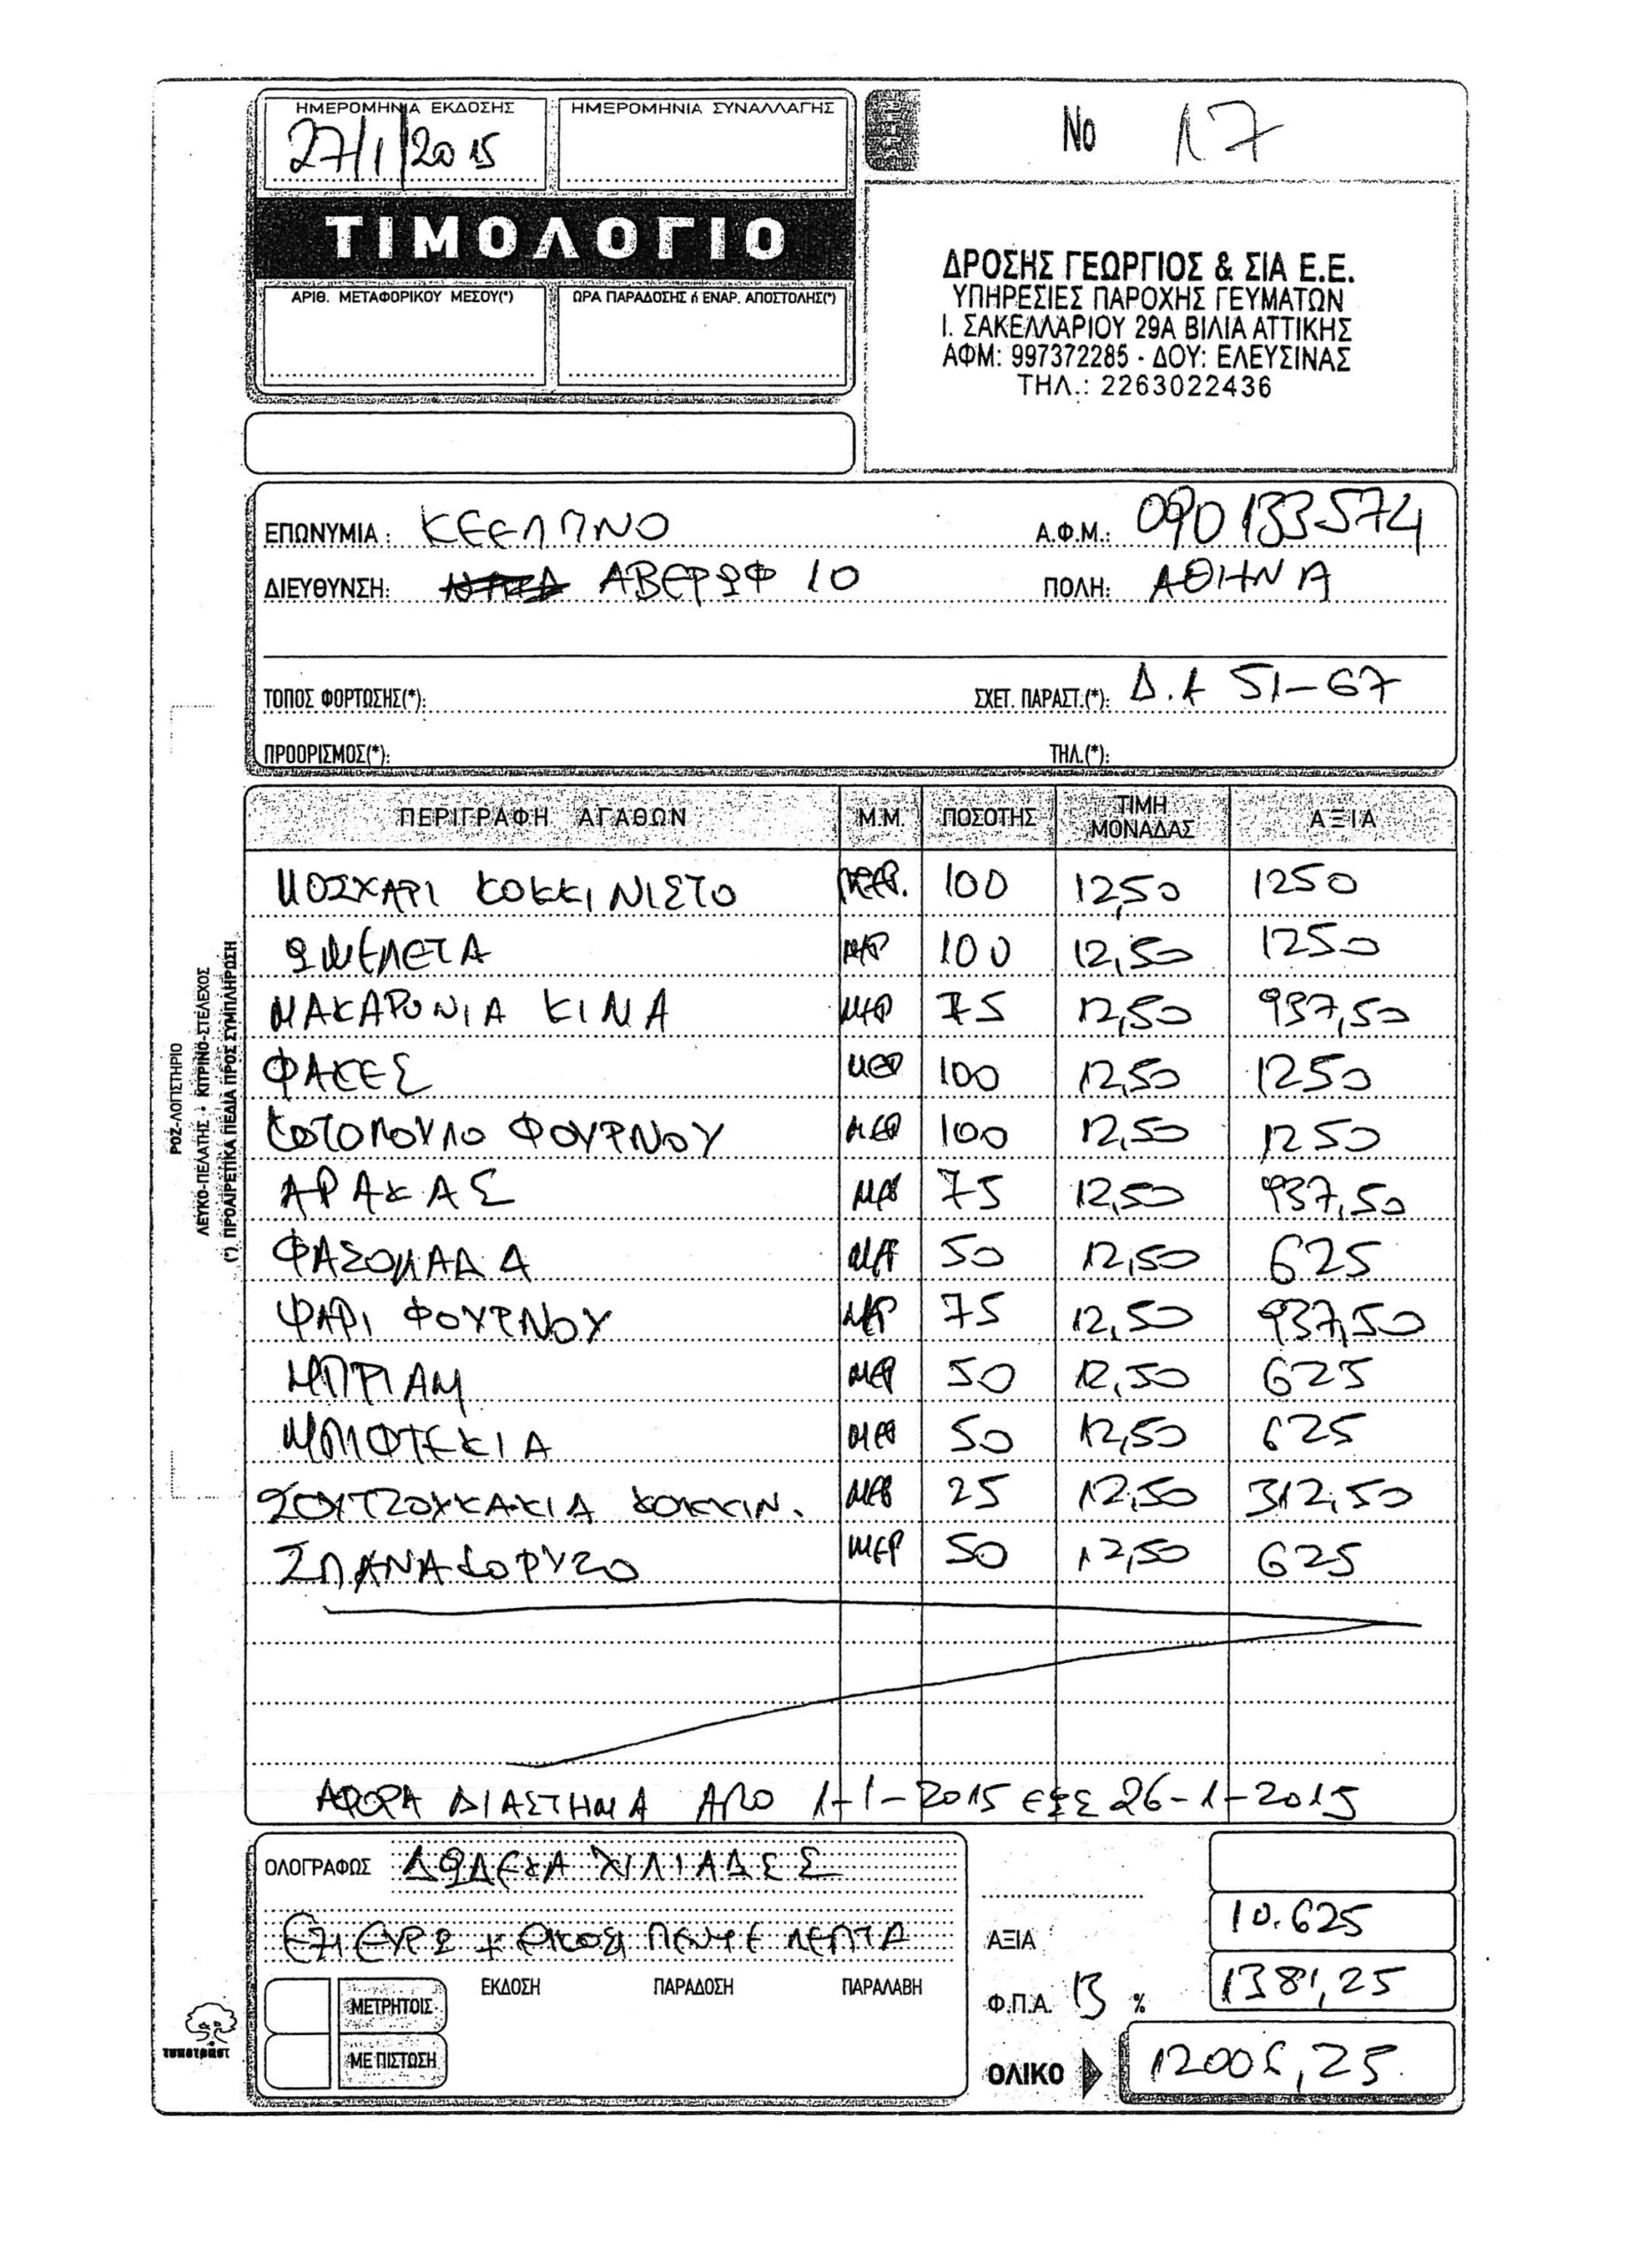 ΗΜΕΡΟΜΗΝΙΑ ΕΚΔΟΣΗΣ ΗΜΕΡΟΜΗΝΙΑ ΣΥΝΑΛΛΑΓΗΣ
27/1/2015
Νο 17
ΤΙΜΟΛΟΓΙΟ
ΑΡΙΘ. ΜΕΤΑΦΟΡΙΚΟΥ ΜΕΣΟΥ(*) ΩΡΑ ΠΑΡΑΔΟΣΗΣ ή ΕΝΑΡ. ΑΠΟΣΤΟΛΗΣ(*)
ΔΡΟΣΗΣ ΓΕΩΡΓΙΟΣ & ΣΙΑ Ε.Ε.
ΥΠΗΡΕΣΙΕΣ ΠΑΡΟΧΗΣ ΓΕΥΜΑΤΩΝ
Ι. ΣΑΚΕΛΛΑΡΙΟΥ 29Α ΒΙΛΙΑ ΑΤΤΙΚΗΣ
ΑΦΜ: 997372285 - ΔΟΥ: ΕΛΕΥΣΙΝΑΣ
ΤΗΛ.: 2263022436
ΕΠΩΝΥΜΙΑ: ΚΕΕΛΠΝΟ Α.Φ.Μ.: 090133574
ΔΙΕΥΘΥΝΣΗ: ΑΒΕΡΩΦ 10 ΠΟΛΗ: ΑΘΗΝΑ
ΤΟΠΟΣ ΦΟΡΤΩΣΗΣ(*): ΣΧΕΤ. ΠΑΡΑΣΤ.(*): Δ.Α 51-67
ΠΡΟΟΡΙΣΜΟΣ(*): ΤΗΛ.(*):
ΠΕΡΙΓΡΑΦΗ ΑΓΑΘΩΝ Μ.Μ. ΠΟΣΟΤΗΣ ΤΙΜΗ ΜΟΝΑΔΑΣ ΑΞΙΑ
ΜΟΣΧΑΡΙ ΚΟΚΚΙΝΙΣΤΟ ΜΕΡ. 100 12,50 1250
ΩΜΕΛΕΤΑ ΜΕΡ 100 12,50 1250
ΜΑΚΑΡΟΝΙΑ ΚΙΜΑ ΜΕΡ 75 12,50 937,50
ΦΑΚΕΣ ΜΕΡ 100 12,50 1250
ΚΟΤΟΠΟΥΛΟ ΦΟΥΡΝΟΥ ΜΕΡ 100 12,50 1250
ΑΡΑΚΑΣ ΜΕΡ 75 12,50 937,50
ΦΑΣΟΛΑΔΑ ΜΕΡ 50 12,50 625
ΨΑΡΙ ΦΟΥΡΝΟΥ ΜΕΡ 75 12,50 937,50
ΜΠΡΙΑΜ ΜΕΡ 50 12,50 625
ΜΠΙΦΤΕΚΙΑ ΜΕΡ 50 12,50 625
ΣΟΥΤΖΟΥΚΑΚΙΑ ΚΟΚΚΙΝ. ΜΕΡ 25 12,50 312,50
ΣΠΑΝΑΚΟΡΥΖΟ ΜΕΡ 50 12,50 625
ΑΦΟΡΑ ΔΙΑΣΤΗΜΑ ΑΠΟ 1-1-2015 ΕΩΣ 26-1-2015
ΡΟΖ-ΛΟΓΙΣΤΗΡΙΟ
ΛΕΥΚΟ-ΠΕΛΑΤΗΣ • ΚΙΤΡΙΝΟ-ΣΤΕΛΕΧΟΣ
(*) ΠΡΟΑΙΡΕΤΙΚΑ ΠΕΔΙΑ ΠΡΟΣ ΣΥΜΠΛΗΡΩΣΗ
ΟΛΟΓΡΑΦΩΣ ΔΩΔΕΚΑ ΧΙΛΙΑΔΕΣ
ΕΞΙ ΕΥΡΩ + ΕΙΚΟΣΙ ΠΕΝΤΕ ΛΕΠΤΑ
ΑΞΙΑ 10.625
ΕΚΔΟΣΗ ΠΑΡΑΔΟΣΗ ΠΑΡΑΛΑΒΗ
ΜΕΤΡΗΤΟΙΣ
Φ.Π.Α. 13 % 1381,25
ΜΕ ΠΙΣΤΩΣΗ
ΟΛΙΚΟ 12006,25
τυποτραστ